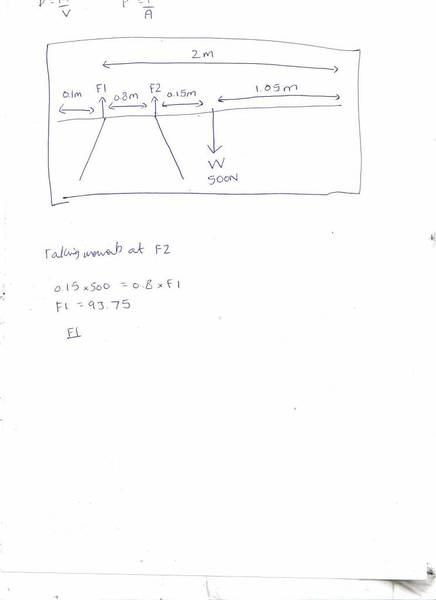 2m
0.1m F1 0.8m F2 0.15m 1.05m
W
500N
Taking moments at F2
0.15 x 500 = 0.8 x F1
F1 = 93.75
F1